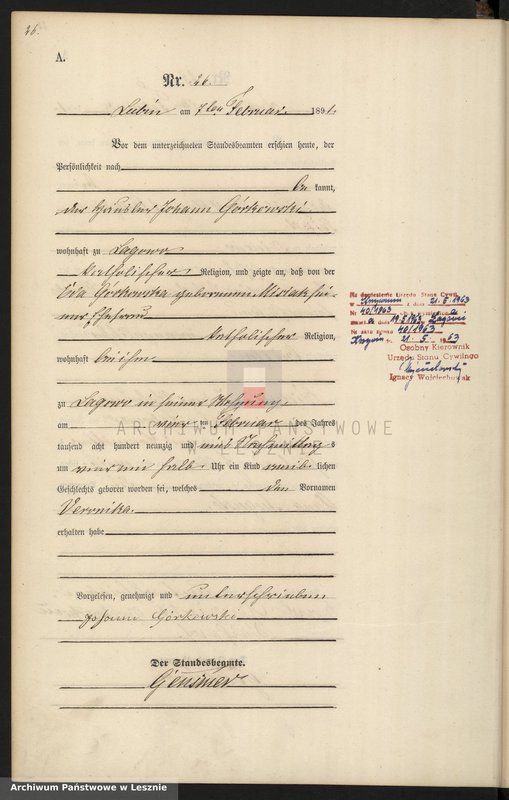 26.
A.
Nr. 26
Lubin am 7ten Februar 1891.
Vor dem unterzeichneten Standesbeamten erschien heute, der
Persönlichkeit nach
be kannt,
der Häusler Johann Górkowski
wohnhaft zu Lagowo
katholischer Religion, und zeigte an, daß von der
Eva Górkowska geborenen
seiner Ehefrau
katholischer Religion,
wohnhaft bei ihm
zu Lagowo in seiner Wohnung
am vier ten Februar des Jahres
tausend acht hundert neunzig und eins Vormittag s
um Uhr ein Kind weib lichen
Geschlechts geboren worden sei, welches den Vornamen
Veronika
erhalten habe
Vorgelesen, genehmigt und unterschrieben
Johann Górkowski
Der Standesbeamte.
Gensmer
Urzędu Stanu Cywil.
w z dnia 21.5.1963
Nr 40/1963
19.5.1963
Nr aktu zgonu 40/1963
21. 5. 1963
Osobny Kierownik
Urzędu Stanu Cywilnego
Ignacy Wojciechowski
ARCHIWUM PAŃSTWOWE
W LESZNIE
Archiwum Państwowe w Lesznie